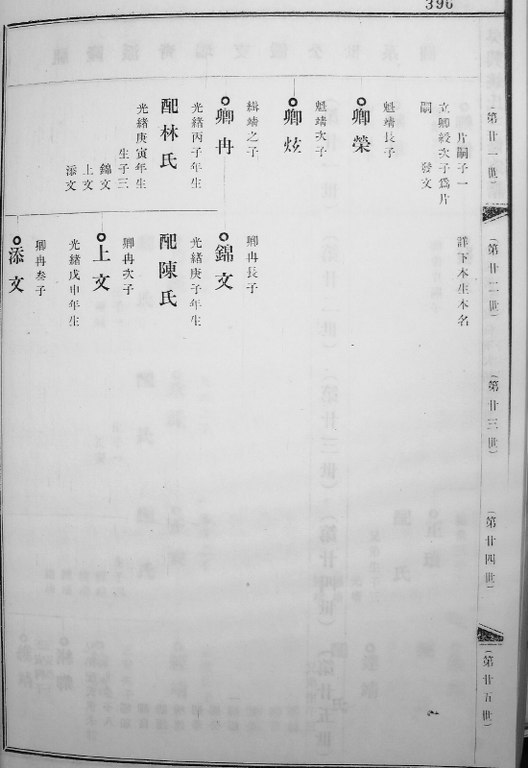 396
（第廿一世）
（第廿二世）
（第廿三世）
（第廿四世）
（第廿五世）
片嗣子一
立卿毅次子爲片
嗣
發文
詳下木生本名
魁靖長子
卿榮
魁靖次子
卿炫
緝靖之子
卿冉
光緒丙子年生
配林氏
光緒庚寅年生
生子三
錦文
上文
添文
卿冉長子
錦文
光緒庚子年生
配陳氏
卿冉次子
上文
光緒戊申年生
卿冉叁子
添文